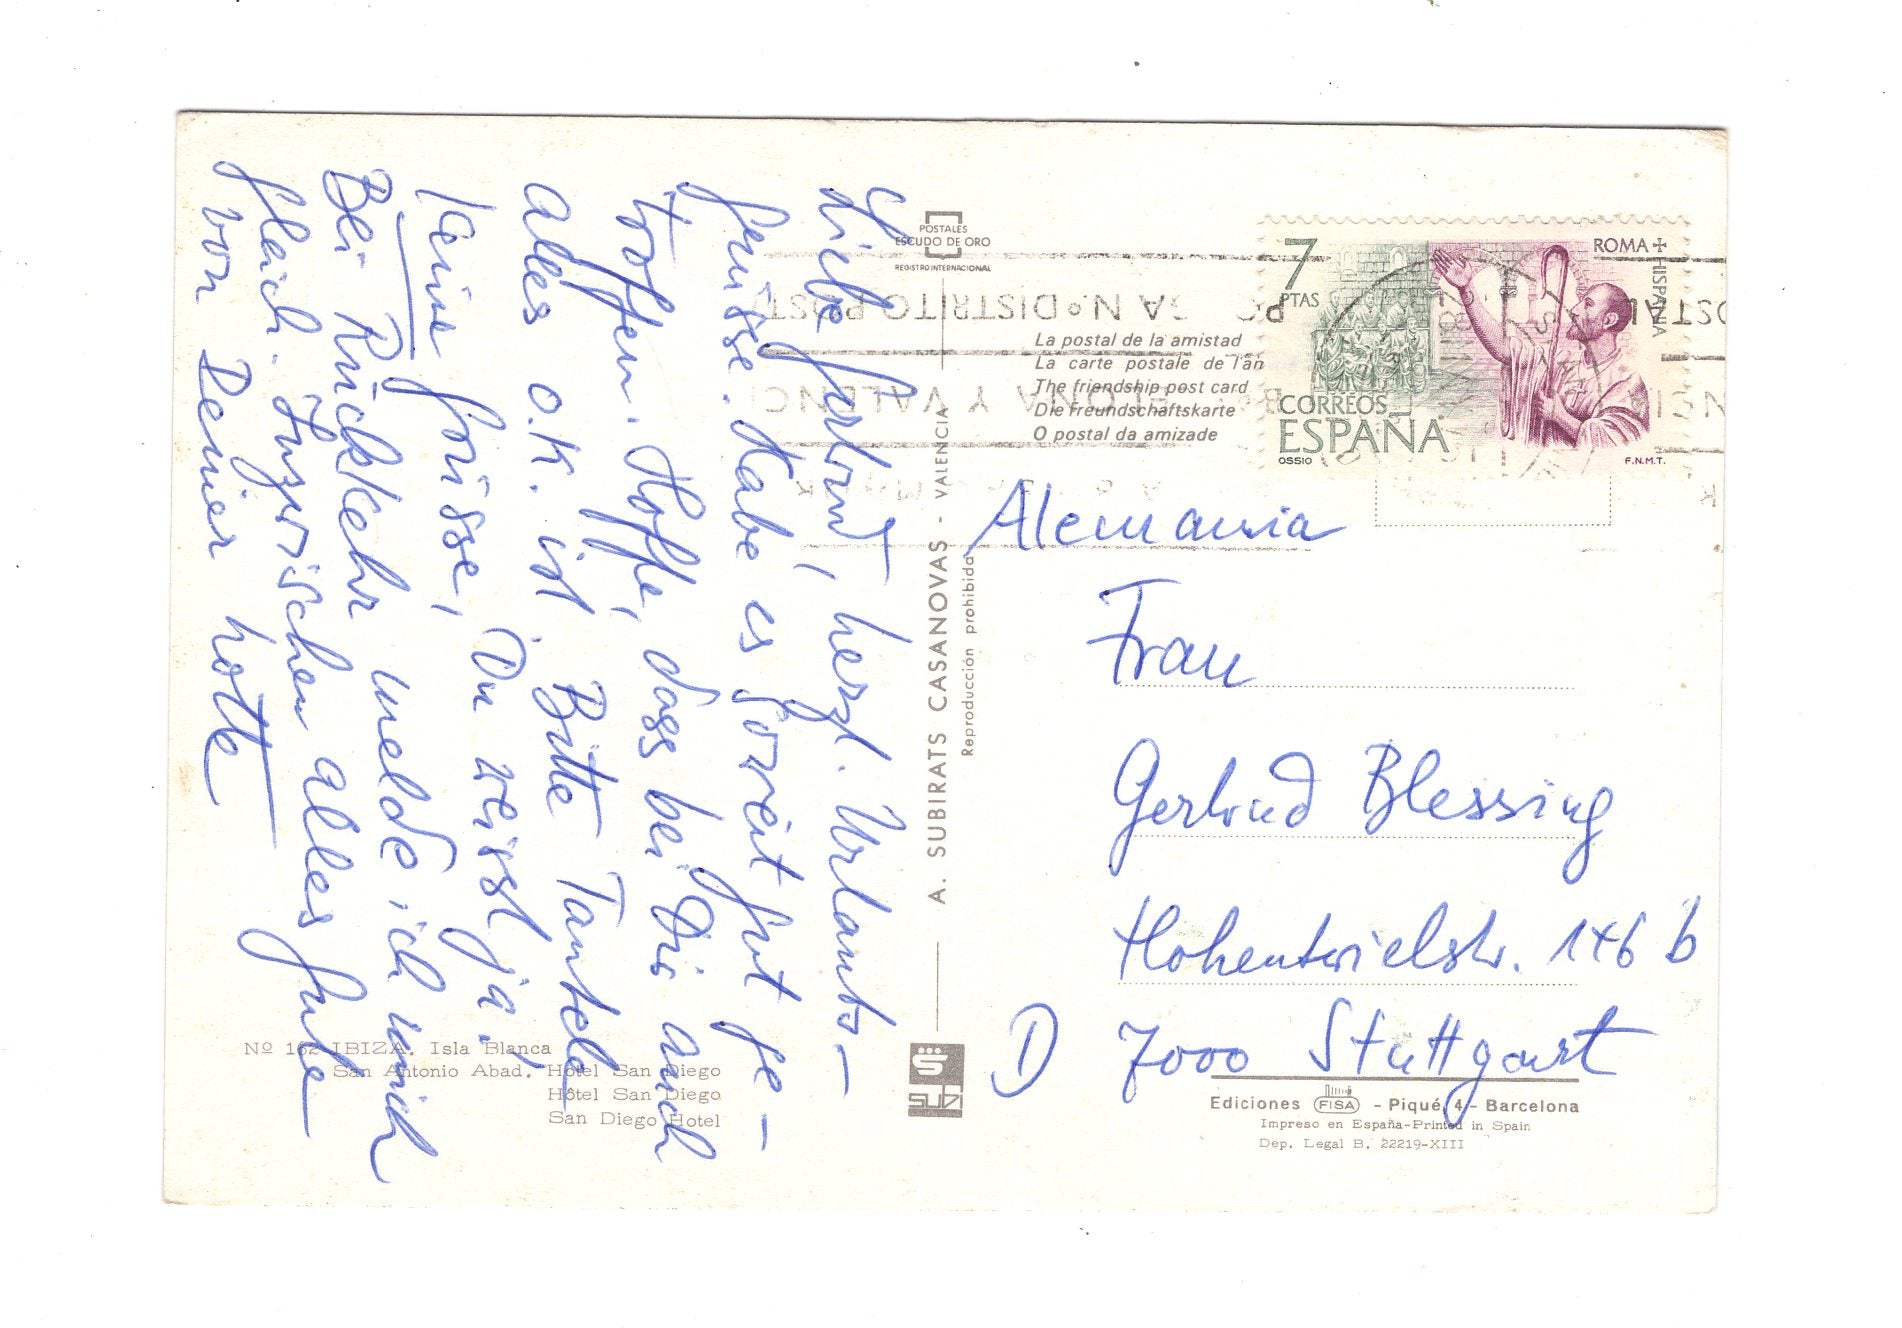 Liebe Gertrud, herzl. Urlaubs-
grüsse. Habe es soweit gut ge-
troffen. Hoffe, dass bei Dir auch
alles o.K. ist. Bitte Tantele
keine Grüsse, Du weisst ja!
Bei Rückkehr melde ich mich
gleich. Inzwischen alles Gute
von Deiner Lotte
POSTALES
ESCUDO DE ORO
REGISTRO INTERNACIONAL
A. SUBIRATS CASANOVAS - VALENCIA
Reproducción prohibida
SUBI
La postal de la amistad
La carte postale de l'am
The friendship post card
Die Freundschaftskarte
O postal da amizade
7
PTAS
ROMA + HISPANIA
CORREOS
ESPAÑA
OSSIO
F.N.M.T.
Nº DISTRITO POSTAL
Y VALENCIA
Alemania
Frau
Gertrud Blessing
Hohentwielstr. 146 b
D 7000 Stuttgart
Nº 162 IBIZA. Isla Blanca
San Antonio Abad. Hotel San Diego
Hôtel San Diego
San Diego Hotel
Ediciones FISA - Piqué, 4 - Barcelona
Impreso en España-Printed in Spain
Dep. Legal B. 22219-XIII